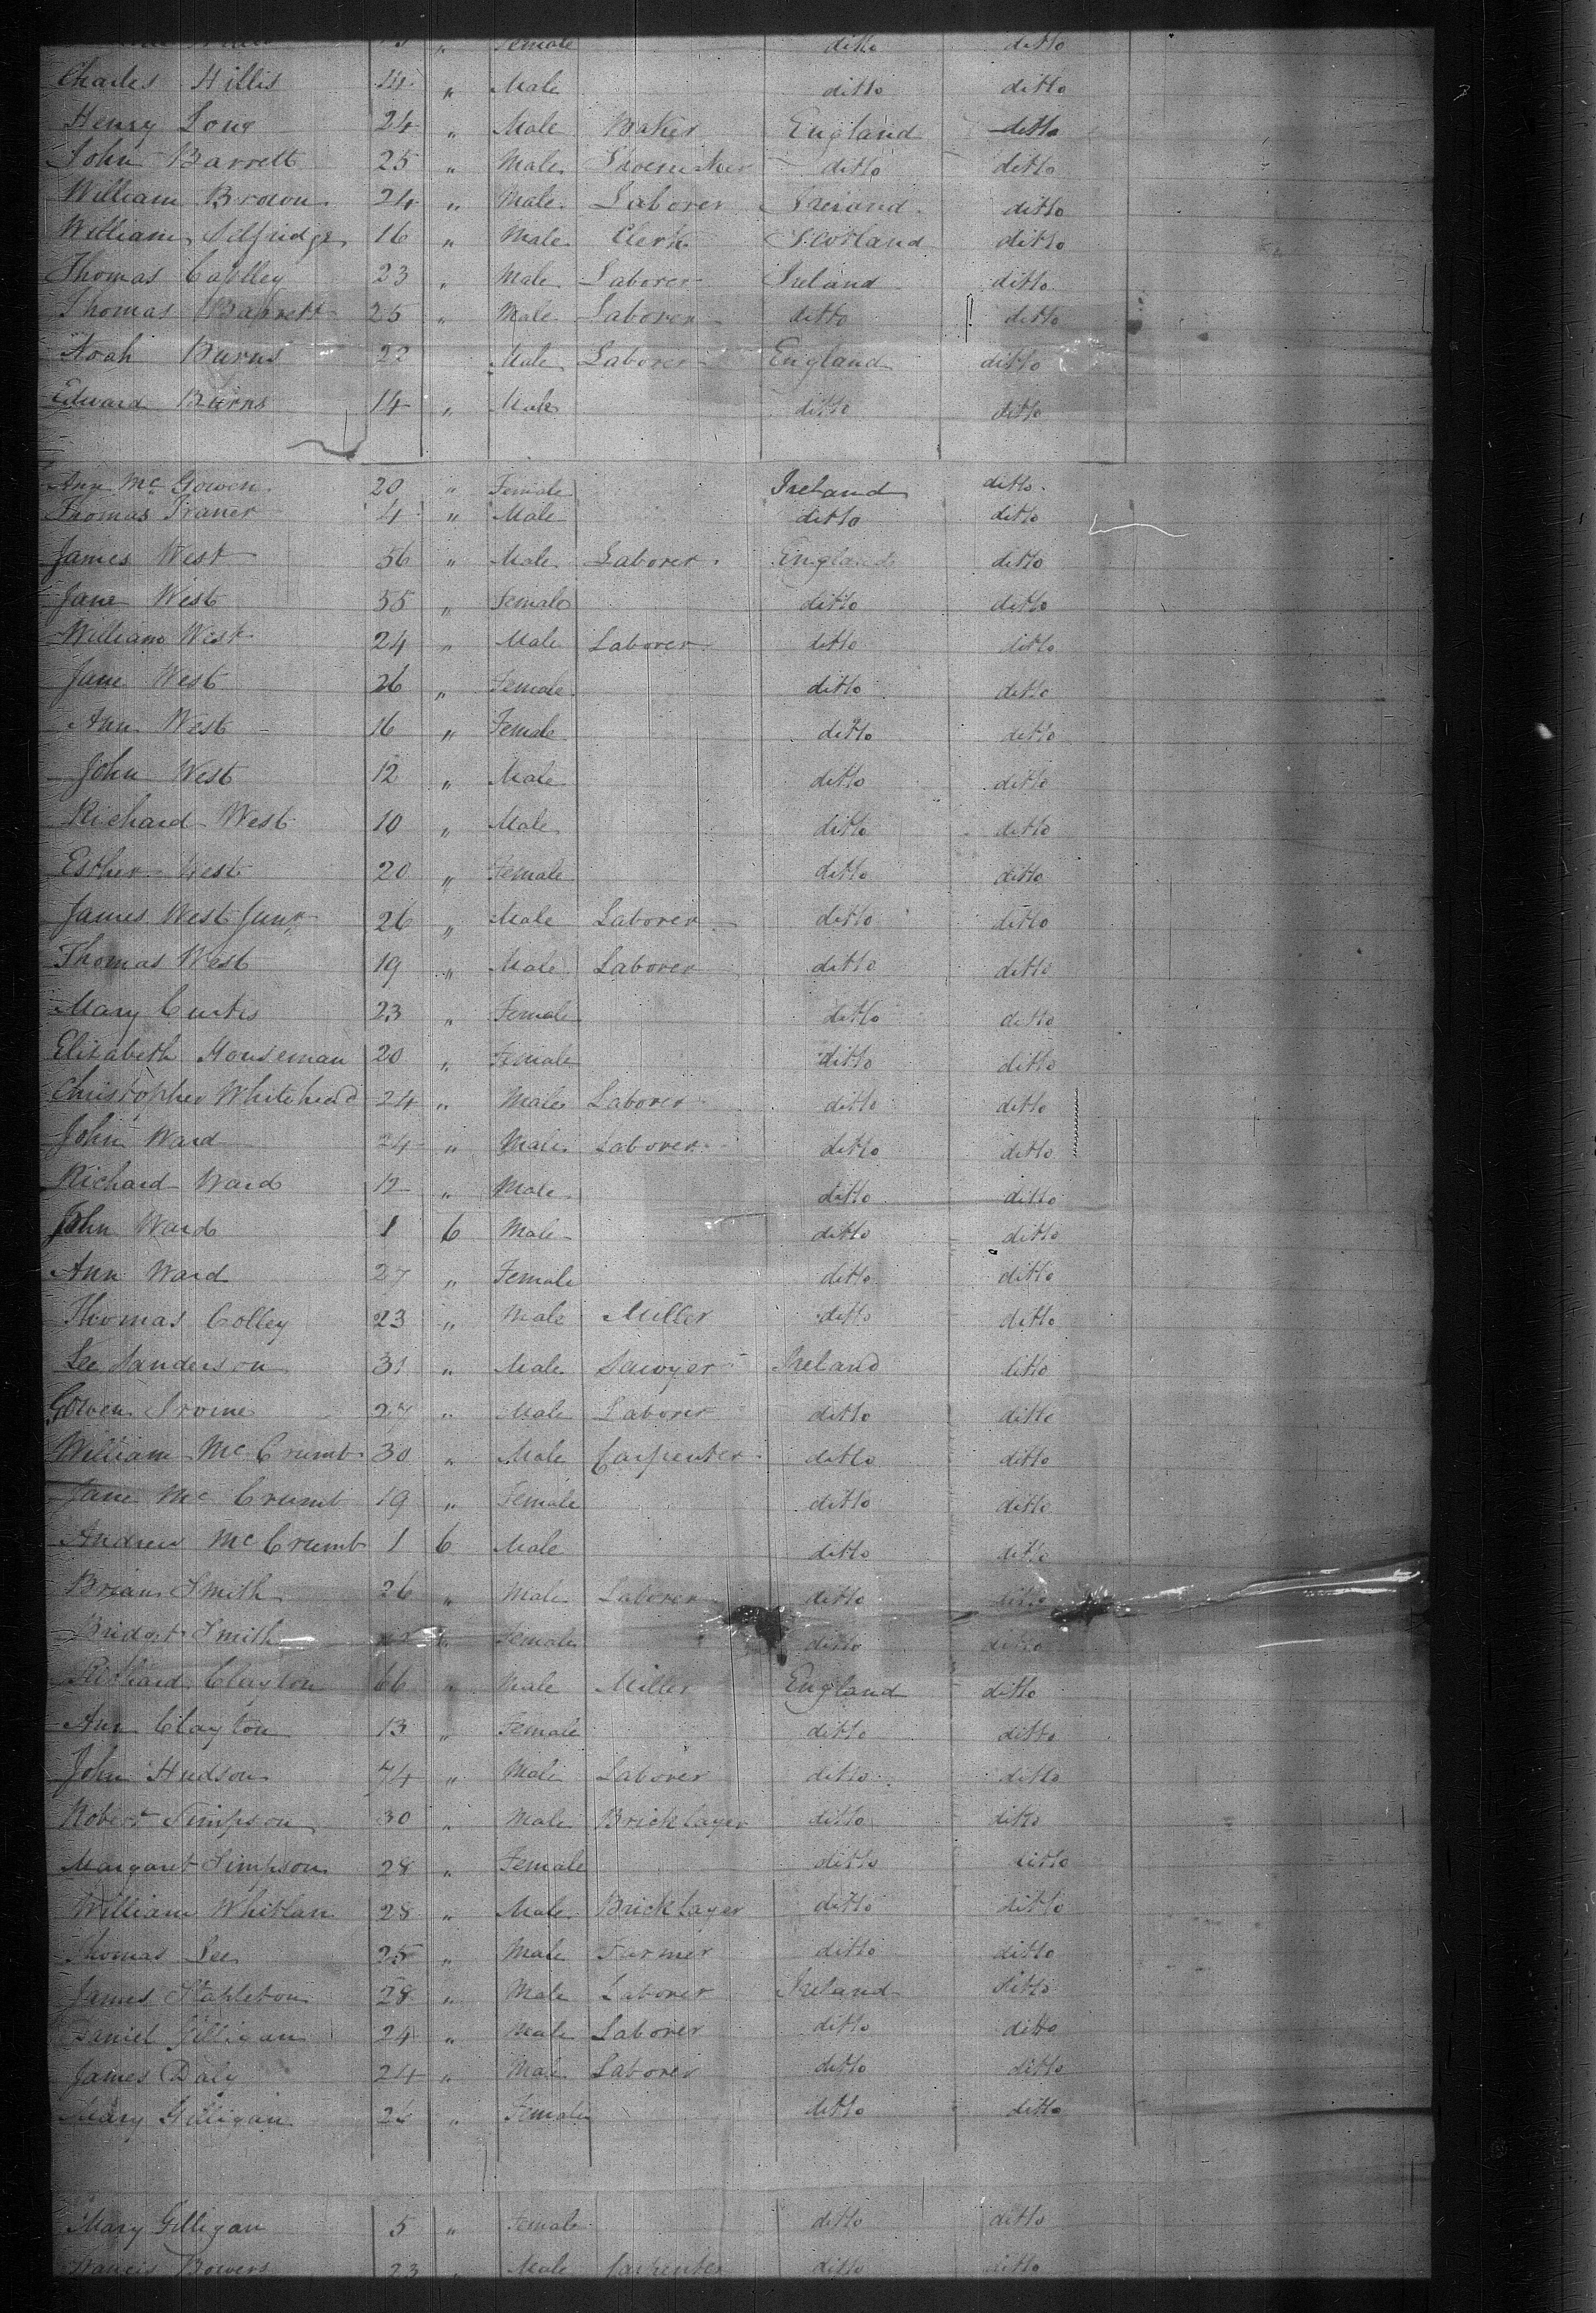 Female ditto ditto
Charles Hillis 14 " Male ditto ditto
Henry Long 24 " Male Baker England ditto
John Barrett 25 " Male Shoemaker ditto ditto
William Brown 24 " Male Laborer Ireland ditto
William Selfridge 16 " Male Clerk Scotland ditto
Thomas 23 " Male Laborer Ireland ditto
Thomas Barrett 25 " Male Laborer ditto ditto
Noah Burns 22 Male Laborer England ditto
Edward Burns 14 " Male ditto ditto
Ann Mc Gowen 20 " Female Ireland ditto
Thomas Traner 4 " Male ditto ditto
James West 56 " Male Laborer England ditto
Jane West 55 " Female ditto ditto
William West 24 " Male Laborer ditto ditto
Jane West 26 " Female ditto ditto
Ann West 16 " Female ditto ditto
John West 12 " Male ditto ditto
Richard West 10 " Male ditto ditto
Esther West 20 " Female ditto ditto
James West Junr 26 " Male Laborer ditto ditto
Thomas West 19 " Male Laborer ditto ditto
Mary Curtis 23 " Female ditto ditto
Elizabeth Houseman 20 " Female ditto ditto
Christopher Whitehead 24 " Male Laborer ditto ditto
John Ward 24 " Male Laborer ditto ditto
Richard Ward 12 " Male ditto ditto
John Ward 1 6 Male ditto ditto
Ann Ward 27 " Female ditto ditto
Thomas Colley 23 " Male Miller ditto ditto
Lee Sanderson 31 " Male Sawyer Ireland ditto
Gowen Irvine 27 " Male Laborer ditto ditto
William Mc Crumb 30 " Male Carpenter ditto ditto
Jane Mc Crumb 19 " Female ditto ditto
Andrew Mc Crumb 1 6 Male ditto ditto
Brian Smith 26 " Male Laborer ditto ditto
Bridget Smith Female ditto ditto
Richard Clayton 66 " Male Miller England ditto
Ann Clayton 13 " Female ditto ditto
John Hudson 74 " Male Laborer ditto ditto
Robert Simpson 30 " Male Bricklayer ditto ditto
Margaret Simpson 28 " Female ditto ditto
William Whitlan 28 " Male Bricklayer ditto ditto
Thomas Lee 25 " Male Farmer ditto ditto
James Stapleton 28 " Male Laborer Ireland ditto
Daniel Gilligan 24 " Male Laborer ditto ditto
James Daly 24 " Male Laborer ditto ditto
Mary Gilligan 26 " Female ditto ditto
Mary Gilligan 5 " Female ditto ditto
Francis Bowers 23 " Male Carpenter ditto ditto